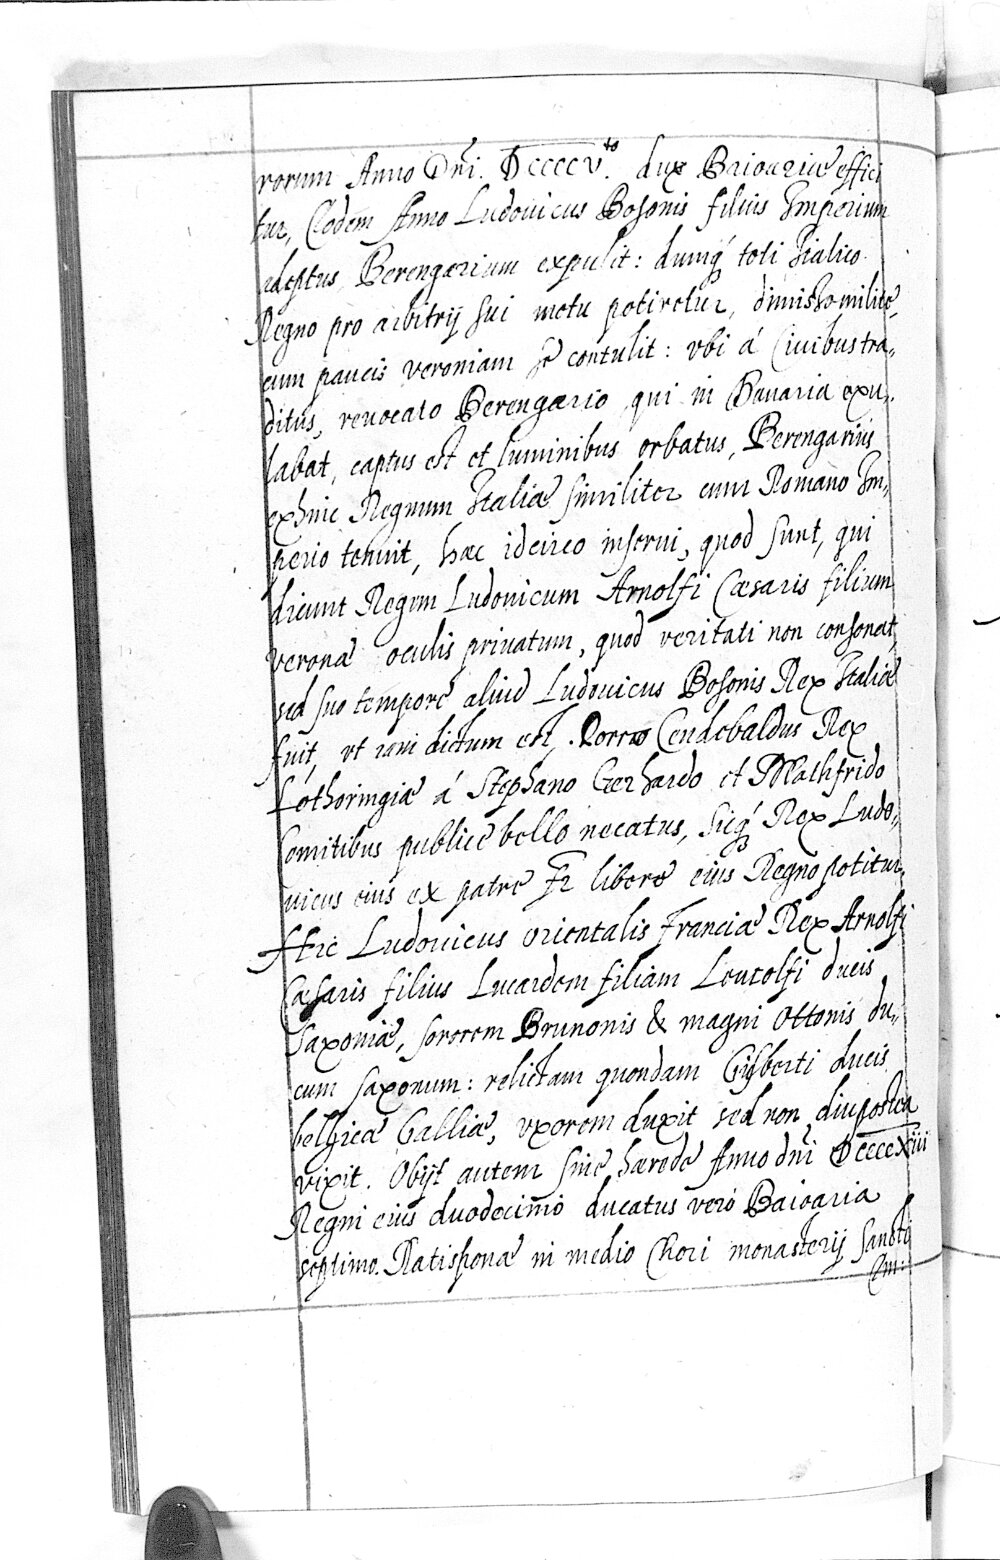 rorum Anno Dñi. Dccccv.to dux Baioariæ effici
tur, Eodem Anno Ludouicus Bosonis filius Imperium
adeptus, Berengarium expulit: dumq́ toti Italico
Regno pro arbitrij sui metu potiretur, dimisso milite,
cum paucis veroniam se contulit: vbi á Ciuibus tra„
ditus, reuocato Berengario, qui in Bauaria exu„
labat, captus est et luminibus orbatus, Berengarius
exhinc Regnum Italiæ similiter cum Romano Im„
perio tenuit, hæc idcirco inserui, quod sunt, qui
dicunt Regem Ludouicum Arnolfi Cæsaris filium
veronæ oculis priuatum, quod veritati non consonat,
sed suo tempore aliud Ludouicus Bosonis Rex Italiæ
fuit, vt iam dictum est. Porro Cendebaldus Rex
Lothoringiæ á Stephano Gerhardo et Mathfrido
Comitibus publice bello necatus, sicq́ Rex Ludo„
uicus eius ex patre fr libere eius Regno potitur.
Hic Ludouicus orientalis Franciæ Rex Arnolfi
Cæsaris filius Lucardem filiam Leutolfi ducis
Saxoniæ, sororem Brunonis & magni Ottonis du„
cum saxonum: relictam quondam Gisberti ducis
belgicæ Galliæ, vxorem duxit sed non diu postea
vixit. Obijt autem sine hærede Anno dñi Dccccxiii
Regni eius duodecimo ducatus vero Baioaria
septimo. Ratisponæ in medio Chori monasterij Sancti
Em: